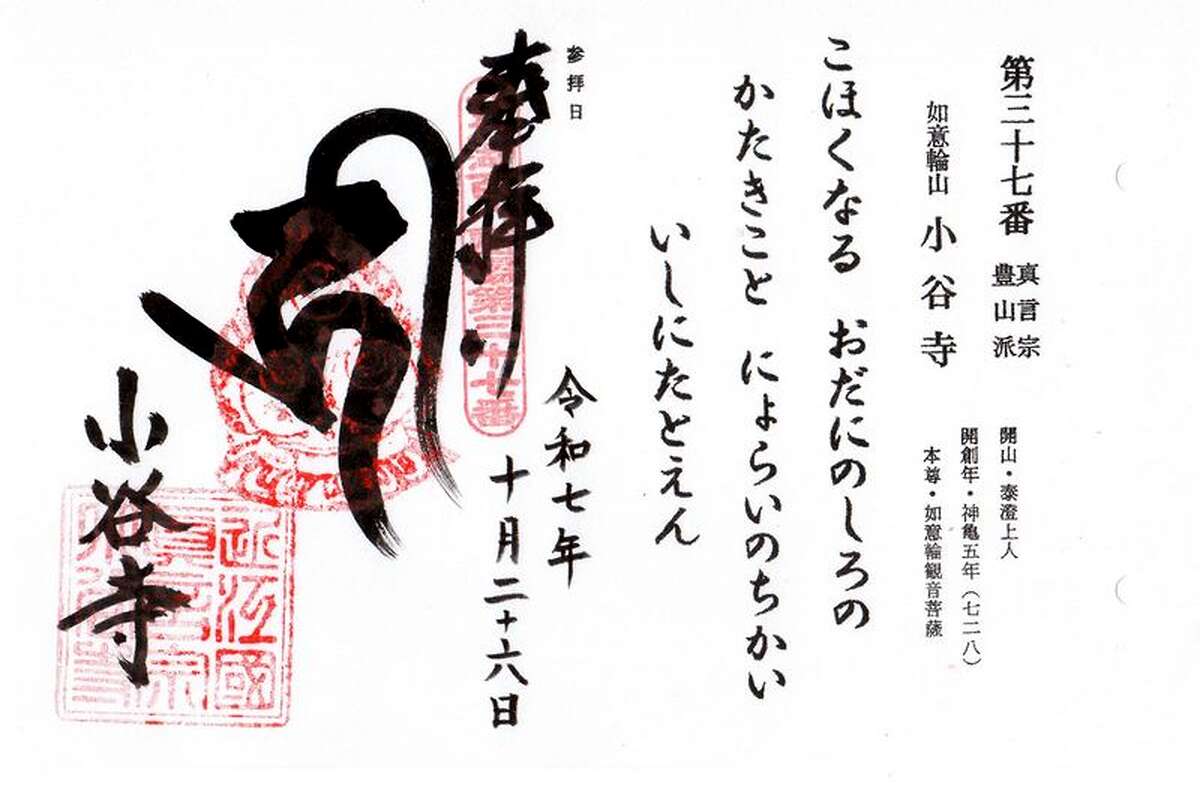 第三十七番 真言宗豊山派
如意輪山 小谷寺
開山・泰澄上人
開創年・神亀五年(七二八)
本尊・如意輪観音菩薩
こほくなる おだにのしろの
かたきこと によらいのちかい
いしにたとえん
参拝日
奉拝
第三十七番
令和七年
十月二十六日
小谷寺
近江國